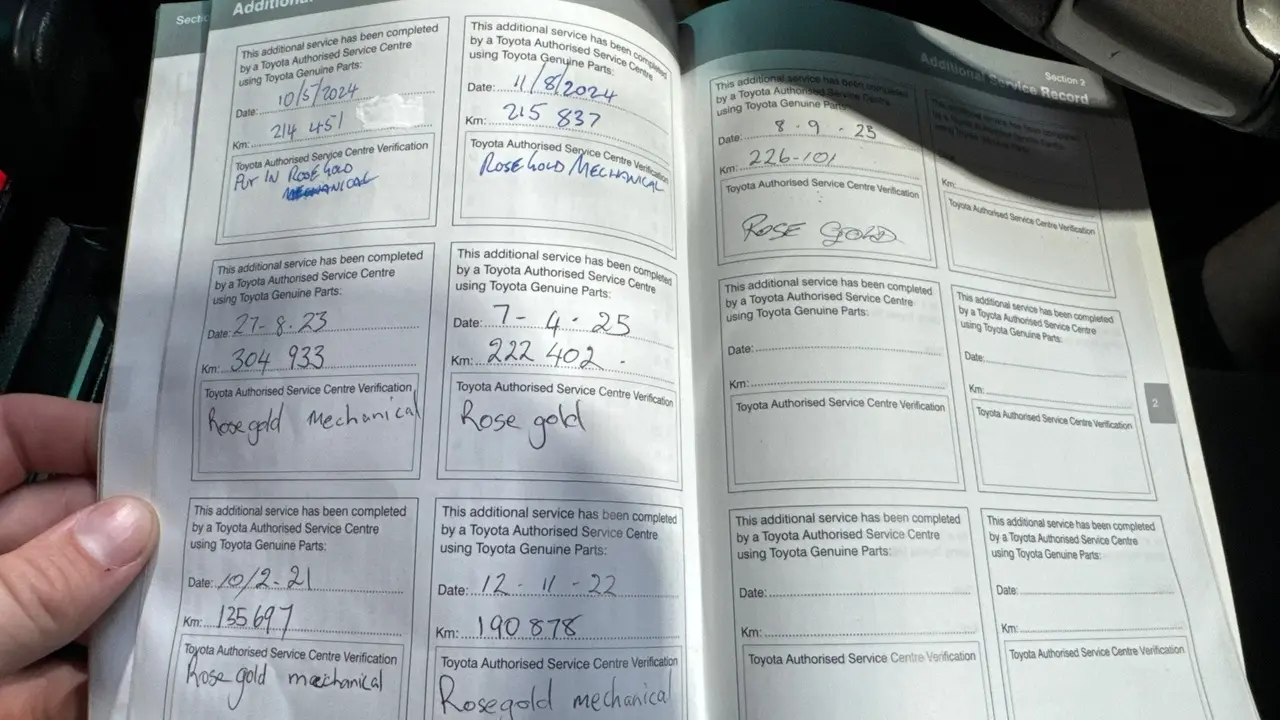 Additional
Section 2
Additional Service Record
This additional service has been completed
by a Toyota Authorised Service Centre
using Toyota Genuine Parts:
Date: 10/5/2024
Km: 214 451
Toyota Authorised Service Centre Verification
PUT IN ROSE GOLD
MECHANICAL
This additional service has been completed
by a Toyota Authorised Service Centre
using Toyota Genuine Parts:
Date: 11/8/2024
Km: 215 837
Toyota Authorised Service Centre Verification
ROSE GOLD/MECHANICAL
This additional service has been completed
by a Toyota Authorised Service Centre
using Toyota Genuine Parts:
Date: 27-8.23
Km: 304 933
Toyota Authorised Service Centre Verification
Rose gold mechanical
This additional service has been completed
by a Toyota Authorised Service Centre
using Toyota Genuine Parts:
Date: 7-4.25
Km: 222 402.
Toyota Authorised Service Centre Verification
Rose gold
This additional service has been completed
by a Toyota Authorised Service Centre
using Toyota Genuine Parts:
Date: 10/2-21
Km: 135697
Toyota Authorised Service Centre Verification
Rose gold mechanical
This additional service has been completed
by a Toyota Authorised Service Centre
using Toyota Genuine Parts:
Date: 12-11-22
Km: 190 878
Toyota Authorised Service Centre Verification
Rosegold mechanical
This additional service has been completed
by a Toyota Authorised Service Centre
using Toyota Genuine Parts:
Date: 8.9.25
Km: 226-101
Toyota Authorised Service Centre Verification
ROSE GOLD
This additional service has been completed
by a Toyota Authorised Service Centre
using Toyota Genuine Parts:
Km:
Toyota Authorised Service Centre Verification
This additional service has been completed
by a Toyota Authorised Service Centre
using Toyota Genuine Parts:
Date:
Km:
Toyota Authorised Service Centre Verification
This additional service has been completed
by a Toyota Authorised Service Centre
using Toyota Genuine Parts:
Date:
Km:
Toyota Authorised Service Centre Verification
2
This additional service has been completed
by a Toyota Authorised Service Centre
using Toyota Genuine Parts:
Date:
Km:
Toyota Authorised Service Centre Verification
This additional service has been completed
by a Toyota Authorised Service Centre
using Toyota Genuine Parts:
Date:
Km:
Toyota Authorised Service Centre Verification